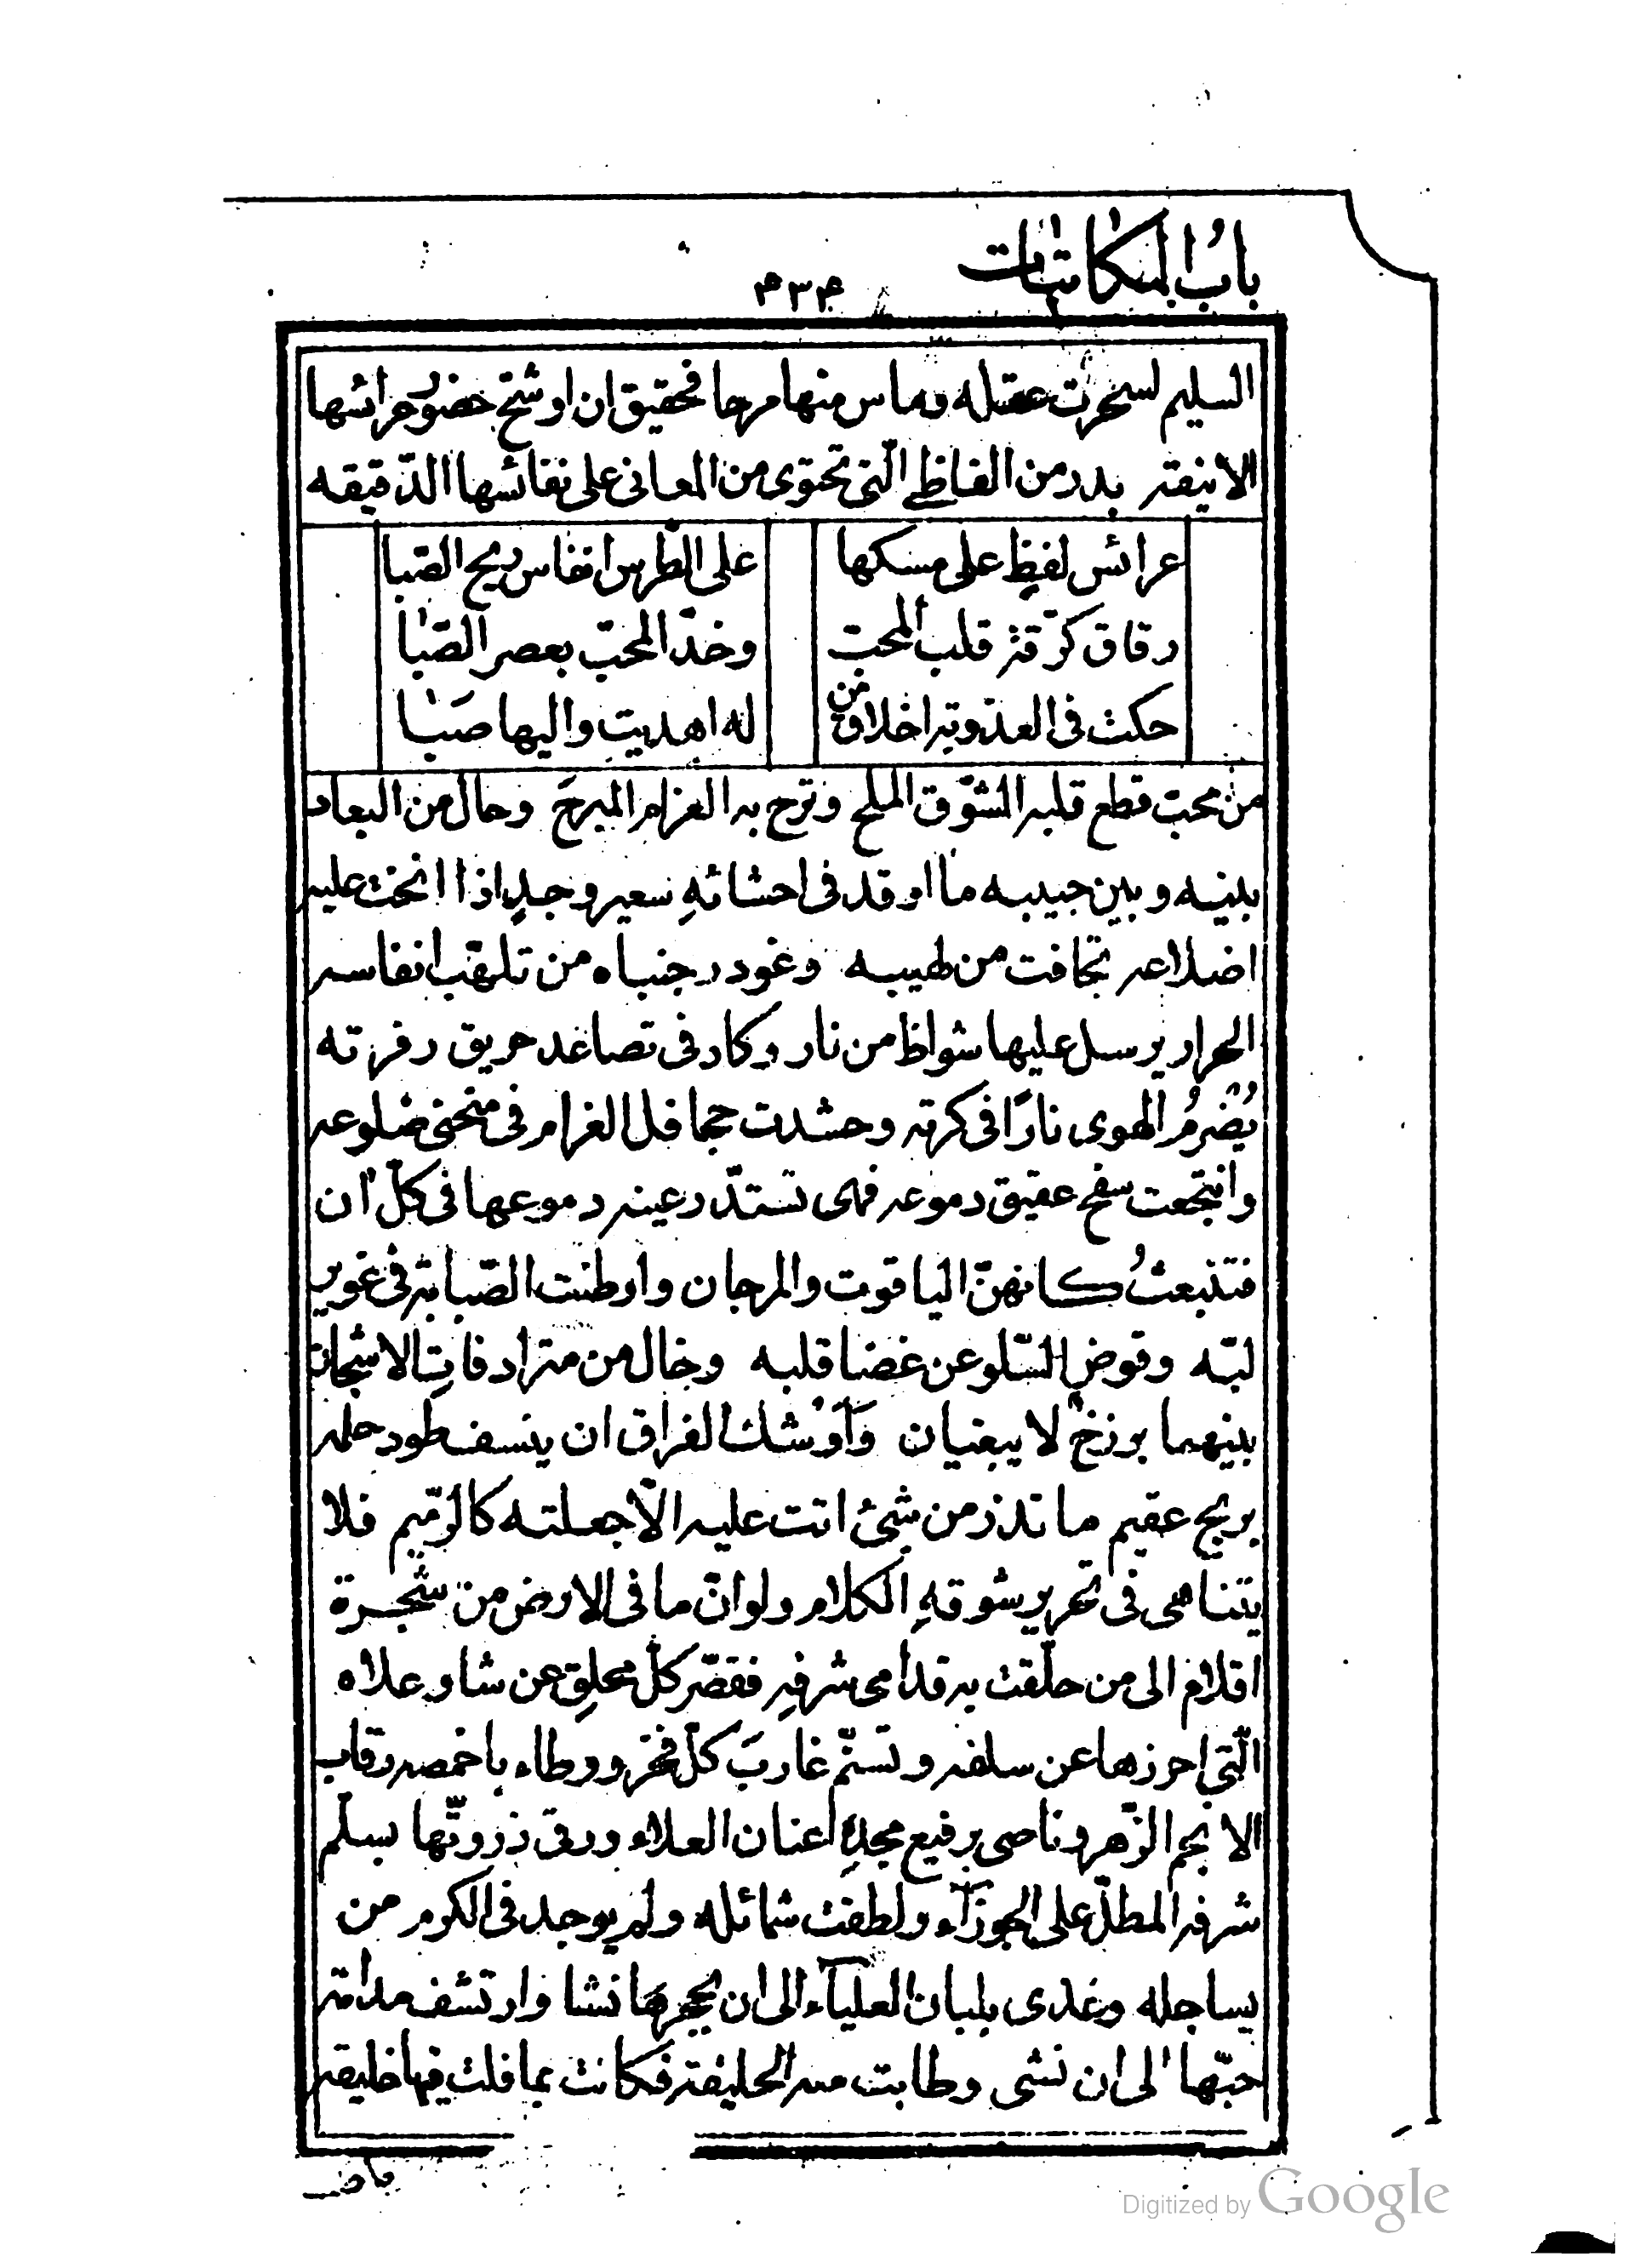 باب المكاتبات
٤٣٤
السليم لسحرت عقله وماس منها مرحا فحقيق ان اوشح خصور عرائسها
الانيقة بدر من الفاظي الّتى تحتوى من المعانى على نفائسها الدّقيقه
عرائس لفظٍ على مسكها
على الطرس انفاس ريح الصّبا
رقاق كرّقة قلب المحبّ
وخدّ المحبّ بعصر الصّبا
حكت فى العذوبة اخلاق من
له اهديت واليها صَبا
من محب قطع قلبه الشوّق الملح وترح به الغرام المبرحَ وحال من البعاد
بينه وبين حبيبه ما اوقد فى احشائهِ سعير وجدٍ اذا انحنت عليه
اضلاعه تجافت من لهيبه وغودر جنباه من تلهّب انفاسه
الحرار يرسل عليها شواظ من نار وكاد فى تصاعد حريق زفرته
يُضرمُ الهوى نارًا فى كرته وحشدت جحافل الغرام فى منحنى ضلوعه
وانتجعت سفح عقيق دموعه فهى تستدّر عينه دموعها فى كلّ ان
فتنبعثُ كانهنّ الياقوت والمرجان واوطنت الصّبابة فى غوير
لبّه وقوض السّلو عن غضا قلبه وخال من مترادفاتِ الاشجان
بينهما برزخٌ لا يبغيان وَاَوْشك الفراق ان ينسف طود حلمه
بريح عقيم ما تذر من شئ اتت عليه الاّ جعلته كالرّميم فلا
يتناهى فى تحرير شوقهِ الكلام ولو انّ ما فى الارض من شجرة
اقلام الى من حلّقت به قدامى شرفهِ فقصّر كلّ محلقٍ عن شاو علاه
الّتى احرزها عن سلفه وتسنّم غاربَ كلّ فخر ووطاء باخمصه رقاب
الانجم الزّهر وناصى برفيع مجدهِ اعنان العلاء ورقى ذروتّها بسلّم
شرفه المطلّ على الجوزآء ولطفت شمائله ولم يوجد فى الكرم من
يساجله وغذى بلبان العلياء الى ان بحجرها نشا وارتشف مدامة
حبّها الى ان نشى وطابت منه الخليقة فكانت بما فلت فيها خليقة